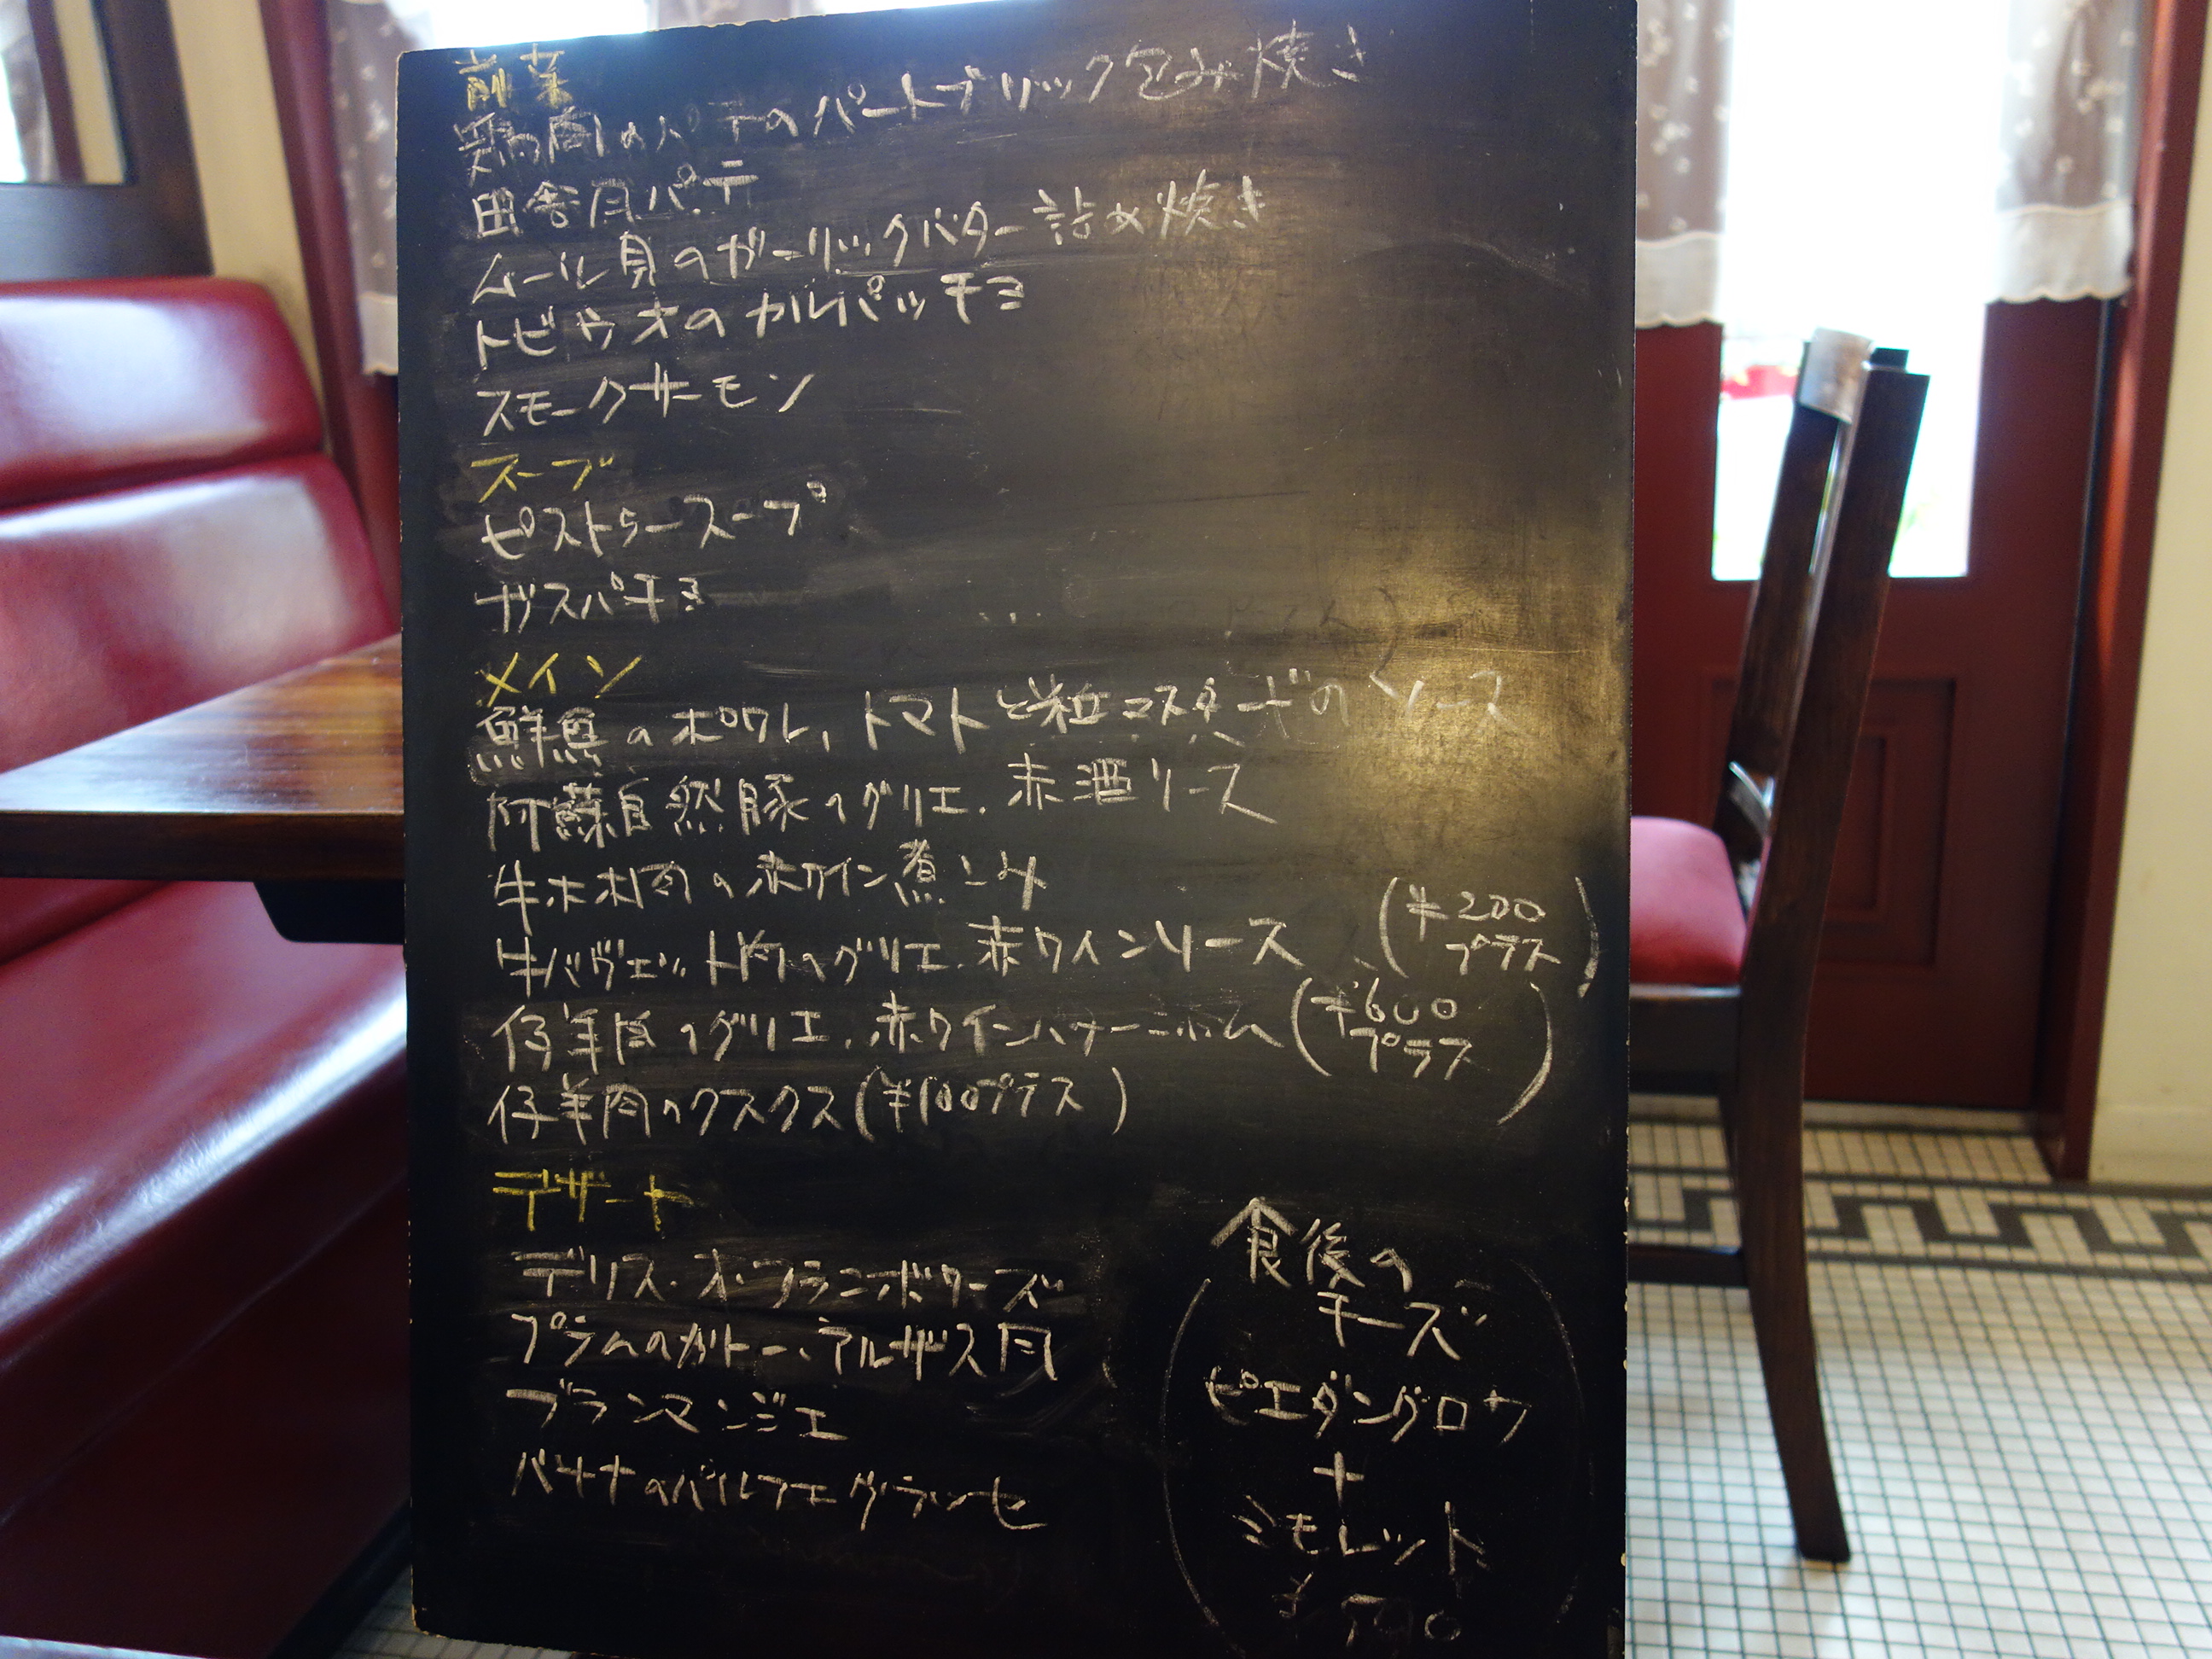 前菜
鶏肉のパテのパートブリック包み焼き
田舎風パテ
ムール貝のガーリックバター詰め焼き
トビウオのカルパッチョ
スモークサーモン
スープ
ピストゥースープ
ガスパチョ
メイン
鮮魚のポワレ、トマトと粒マスタードのソース
阿蘇自然豚のグリエ、赤酒ソース
牛ホホ肉の赤ワイン煮こみ
牛バヴェットのグリエ、赤ワインソース (¥200プラス)
仔羊肉のグリエ、赤ワインハニーニホム (¥600プラス)
仔羊肉のクスクス(¥100プラス)
デザート
デリス・オ・フランボワーズ
プラムのガトー、アルザス風
ブランマンジェ
バナナのパルフェグラッセ
食後の
チーズ
ピエダングロワ
+
ミモレット